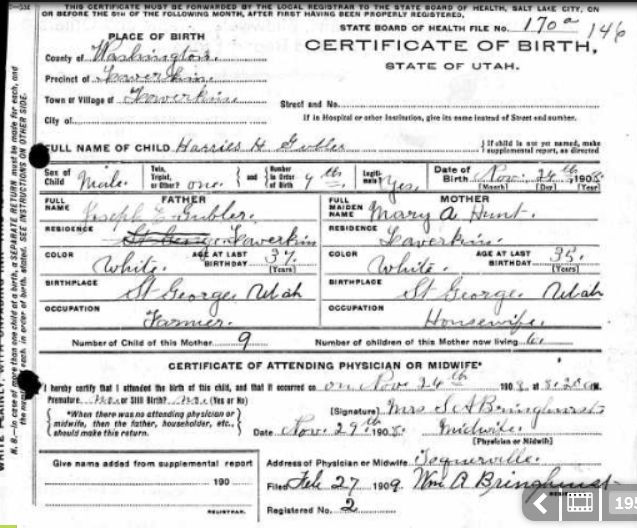 THIS CERTIFICATE MUST BE FORWARDED BY THE LOCAL REGISTRAR TO THE STATE BOARD OF HEALTH, SALT LAKE CITY, ON
OR BEFORE THE 5TH OF THE FOLLOWING MONTH, AFTER FIRST HAVING BEEN PROPERLY REGISTERED.
STATE BOARD OF HEALTH FILE No. 170a 146
PLACE OF BIRTH
CERTIFICATE OF BIRTH,
STATE OF UTAH.
County of Washington.
Precinct of Laverkin.
Town or Village of Laverkin.
Street and No.
City of
If in Hospital or other Institution, give its name instead of Street and number.
FULL NAME OF CHILD Harries H. Gubler
If child is not yet named, make supplemental report, as directed
Sex of Child Male. Twin, Triplet, or Other? one. and Number in Order of Birth 9th. Legitimate? Yes. Date of Birth Nov. 24th, 1908.
(Month) (Day) (Year)
FATHER
FULL NAME Joseph Gubler.
RESIDENCE St George Laverkin
COLOR White. AGE AT LAST BIRTHDAY 37. (Years)
BIRTHPLACE St George, Utah
OCCUPATION Farmer.
MOTHER
FULL MAIDEN NAME Mary A Hunt.
RESIDENCE Laverkin.
COLOR White. AGE AT LAST BIRTHDAY 35. (Years)
BIRTHPLACE St George, Utah
OCCUPATION Housewife.
Number of Child of this Mother 9 Number of children of this Mother now living 6.
CERTIFICATE OF ATTENDING PHYSICIAN OR MIDWIFE*
I hereby certify that I attended the birth of this child, and that it occurred on Nov 24th 1908. at
Premature. No. or Still Birth? No. (Yes or No)
*When there was no attending physician or midwife, then the father, householder, etc., should make this return.
[Signature] Mrs S A Bringhurst
Date Nov. 29th 1908. Midwife.
[Physician or Midwife]
Give name added from supplemental report
190
REGISTRAR.
Address of Physician or Midwife Toquerville.
Filed Feb 27 1909. Wm A Bringhurst
Registered No. 2
N. B.—In case of more than one child at a birth, a SEPARATE RETURN must be made for each, and
the number of each, in order of birth, stated. SEE INSTRUCTIONS ON OTHER SIDE.
195